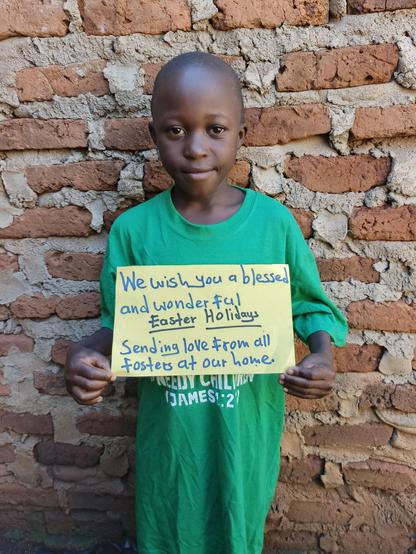 We wish you a blessed
and wonderful
Easter Holidays
Sending love from all
fosters at our home.
NEEDY CHILDREN
(JAMES1:27